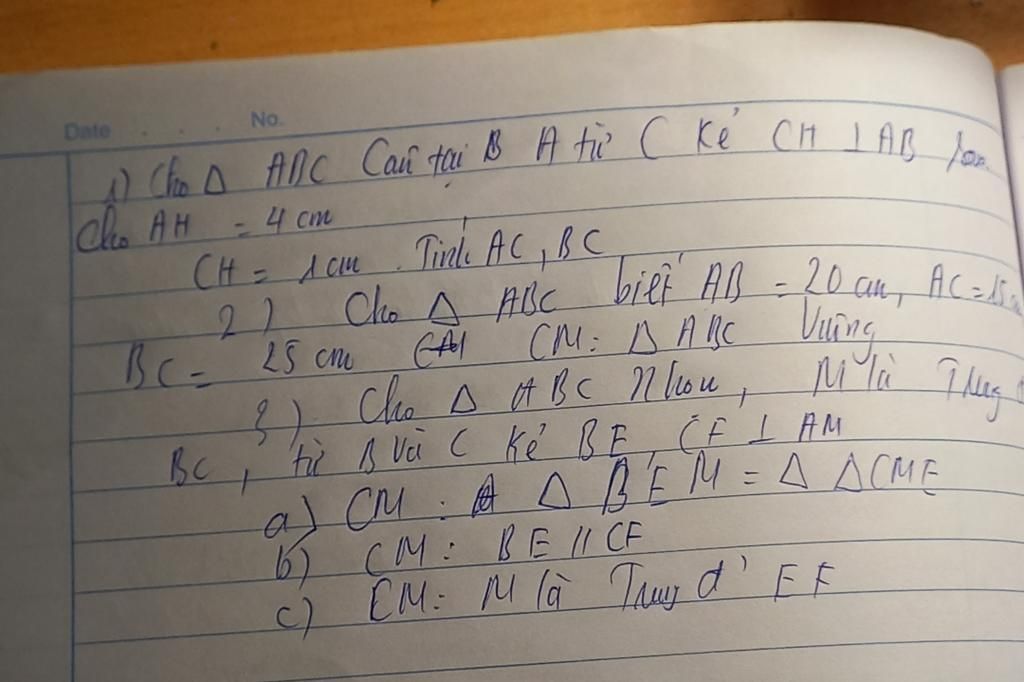 Date . . . No.
1) Cho Δ ABC Cân tại B A từ C Kẻ CH ⊥ AB
Cho AH = 4 cm
CH = 1 cm . Tính AC, BC
2) Cho Δ ABC biết AB = 20 cm, AC = 15
BC = 25 cm CM: Δ ABC Vuông
3) Cho Δ ABC Nhọn, M là Trung
BC, từ B và C Kẻ BE, CF ⊥ AM
a) CM : Δ BEM = Δ ΔCMF
b) CM: BE // CF
c) CM: M là Trung đ' EF